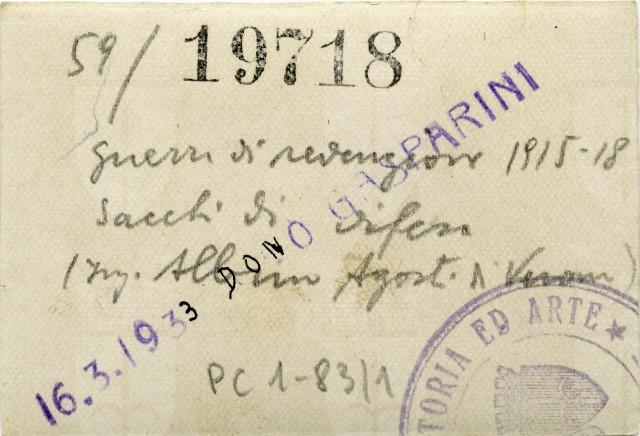 59/ 19718
guerra di redenzione 1915-18
sacchi di difesa
(ing. Albino Agosti di Verona)
16.3.1933 DONO GASPARINI
PC 1-83/1
TORIA ED ARTE ★